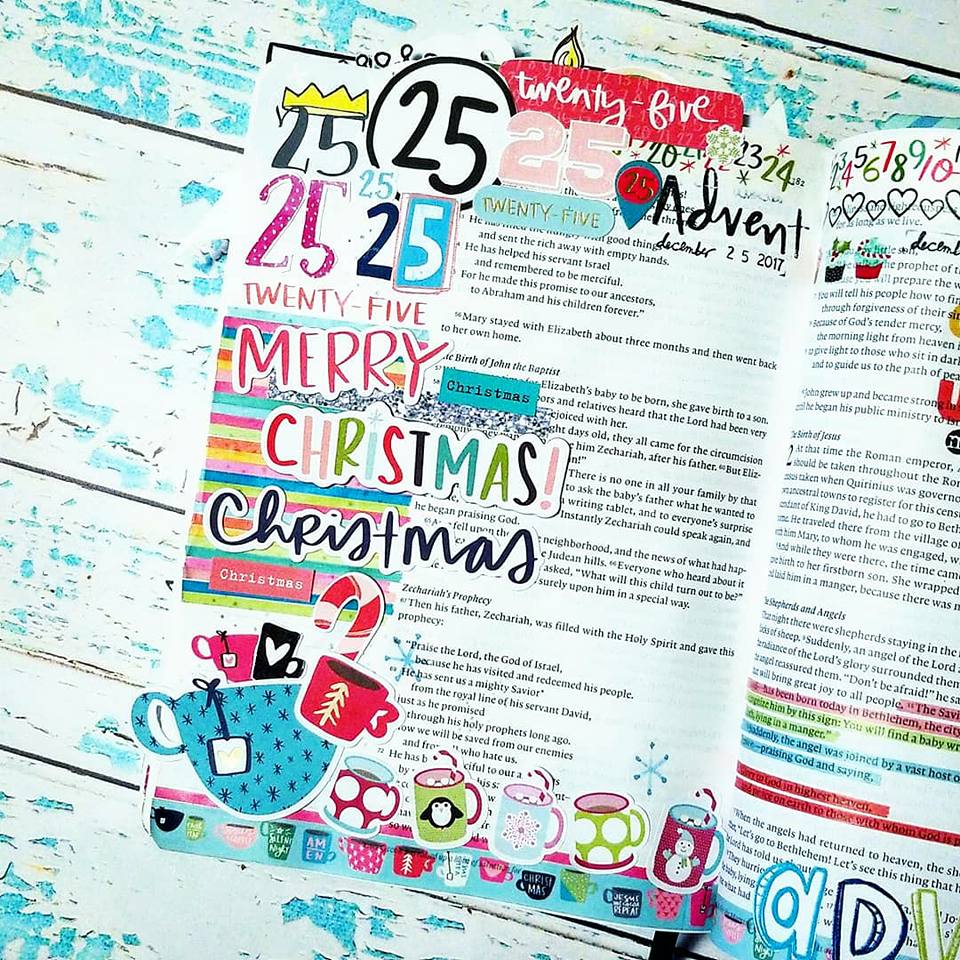 25
25
twenty-five
25
25
25
25
TWENTY-FIVE
25
20
23
24
Advent
december 25 2017
TWENTY-FIVE
MERRY
Christmas
CHRISTMAS!
Christmas
Christmas
good things
and sent the rich away with empty hands.
He has helped his servant Israel
and remembered to be merciful.
For he made this promise to our ancestors,
to Abraham and his children forever.”
56 Mary stayed with Elizabeth about three months and then went back
to her own home.
Birth of John the Baptist
Elizabeth’s baby to be born, she gave birth to a son.
ors and relatives heard that the Lord had been very
ejoiced with her.
ht days old, they all came for the circumcision
him Zechariah, after his father. 60 But Eliz-
There is no one in all your family by that
to ask the baby’s father what he wanted to
writing tablet, and to everyone’s surprise
Instantly Zechariah could speak again, and
he began praising God.
fell upon the
neighborhood, and the news of what had hap-
Judean hills. 66 Everyone who heard about it
asked, “What will this child turn out to be?”
surely upon him in a special way.
Zechariah’s Prophecy
67 Then his father, Zechariah, was filled with the Holy Spirit and gave this
prophecy:
“Praise the Lord, the God of Israel,
because he has visited and redeemed his people.
He has sent us a mighty Savior
from the royal line of his servant David,
just as he promised
through his holy prophets long ago.
now we will be saved from our enemies
and from all who hate us.
72 He has
ciful to our a
SILENT
Night
AM
EN
CHRIST
MAS
JESUS
REPEAT
3 4 5 6 7 8 9 10
as long as we live.
decemb
the prophet of t
will prepare the w
You will tell his people how to find
through forgiveness of their sin
Because of God’s tender mercy,
the morning light from heaven
to give light to those who sit in dark
and to guide us to the path of pea
John grew up and became strong in
he began his public ministry to Is
The Birth of Jesus
At that time the Roman emperor, A
should be taken throughout the Ro
taken when Quirinius was governo
ancestral towns to register for this cens
of King David, he had to go to Beth
He traveled there from the village of
him Mary, to whom he was engaged, w
And while they were there, the time came
birth to her firstborn son. She wrapped
laid him in a manger, because there was n
The Shepherds and Angels
That night there were shepherds staying in the
flocks of sheep. 9 Suddenly, an angel of the Lord a
radiance of the Lord’s glory surrounded them
angel reassured them. “Don’t be afraid!” he sa
will bring great joy to all people. 11 The Savi
has been born today in Bethlehem, the city
recognize him by this sign: You will find a baby wr
lying in a manger.”
Suddenly, the angel was joined by a vast host o
praising God and saying,
God in highest heaven,
and peace on earth to those with whom God is p
When the angels had returned to heaven, the she
“Let’s go to Bethlehem! Let’s see this thing that h
Lord has told us about
They hurrie
baby, lying
ADV